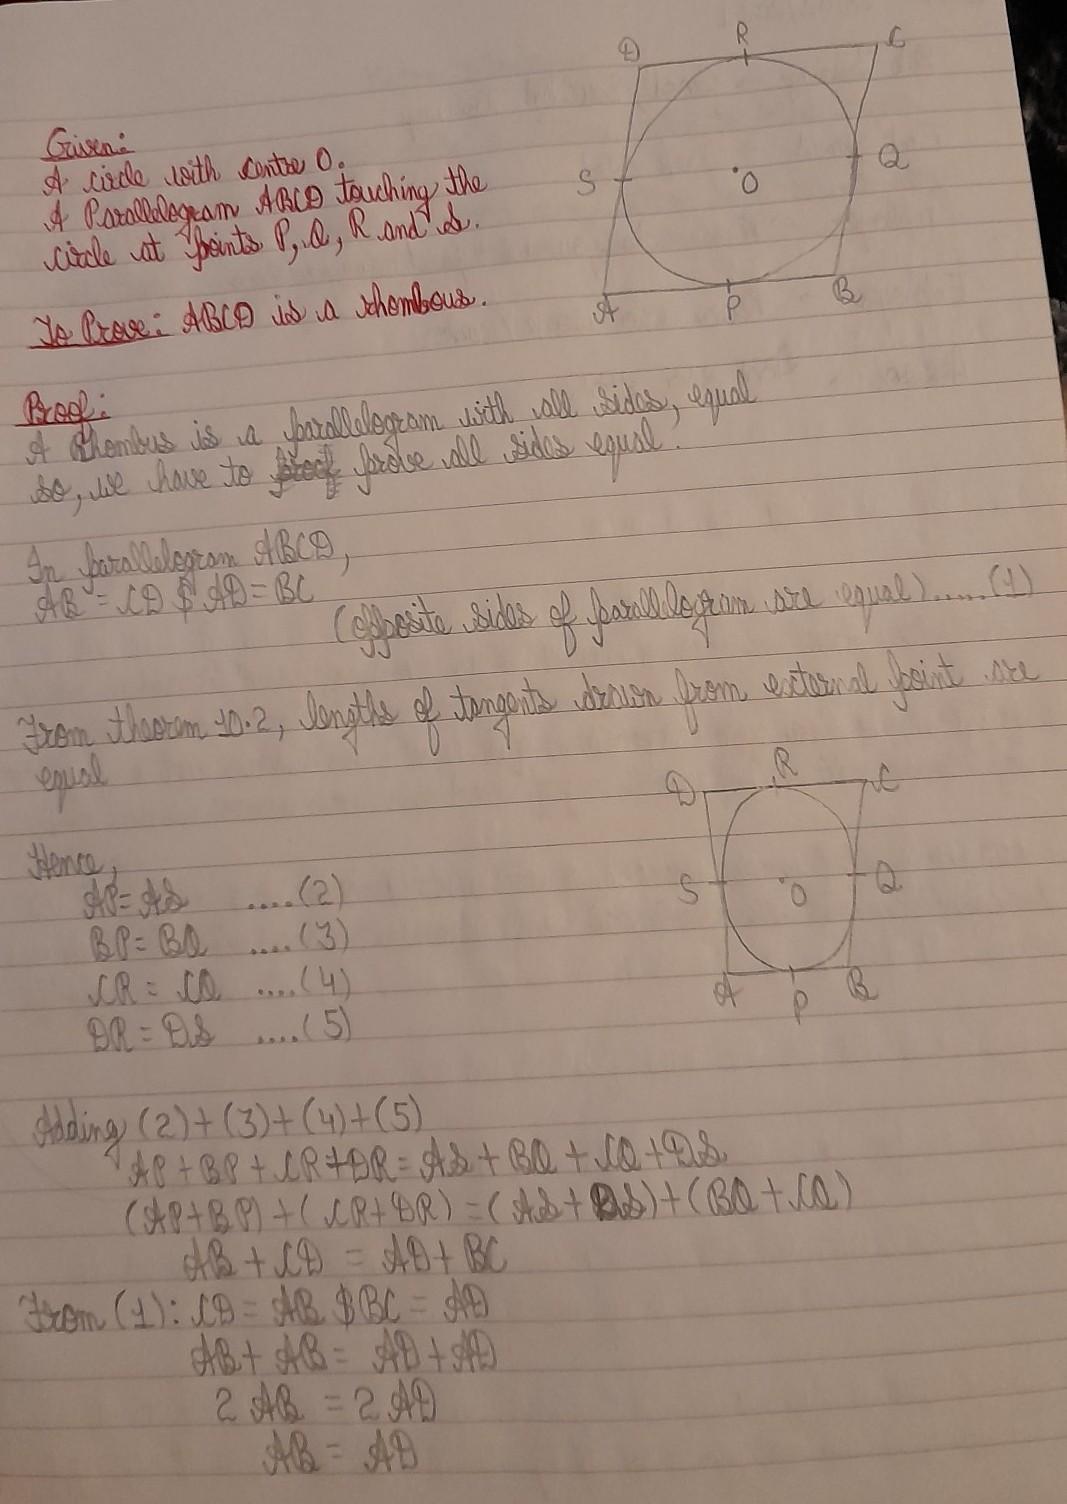 D
R
C
S
Q
O
A
P
B
Given:
A circle with centre O.
A Parallelogram ABCD touching the
circle at points P, Q, R and S.
To Prove: ABCD is a rhombous.
Proof:
A Rhombus is a parallelogram with all sides, equal
so, we have to proof prove all sides equal.
In parallelogram ABCD,
AB = CD $ AD = BC
(opposite sides of parallelogram are equal).....(1)
From theorem 10.2, lengths of tangents drawn from external point are
equal
D
R
C
S
Q
O
A
P
B
Hence,
AP = AS ....(2)
BP = BQ ....(3)
CR = CQ ....(4)
DR = DS ....(5)
Adding (2)+(3)+(4)+(5)
AP + BP + CR + DR = AS + BQ + CQ + DS
(AP+BP) + (CR+DR) = (AS + DS) + (BQ + CQ)
AB + CD = AD + BC
From (1): CD = AB $ BC = AD
AB + AB = AD + AD
2 AB = 2 AD
AB = AD